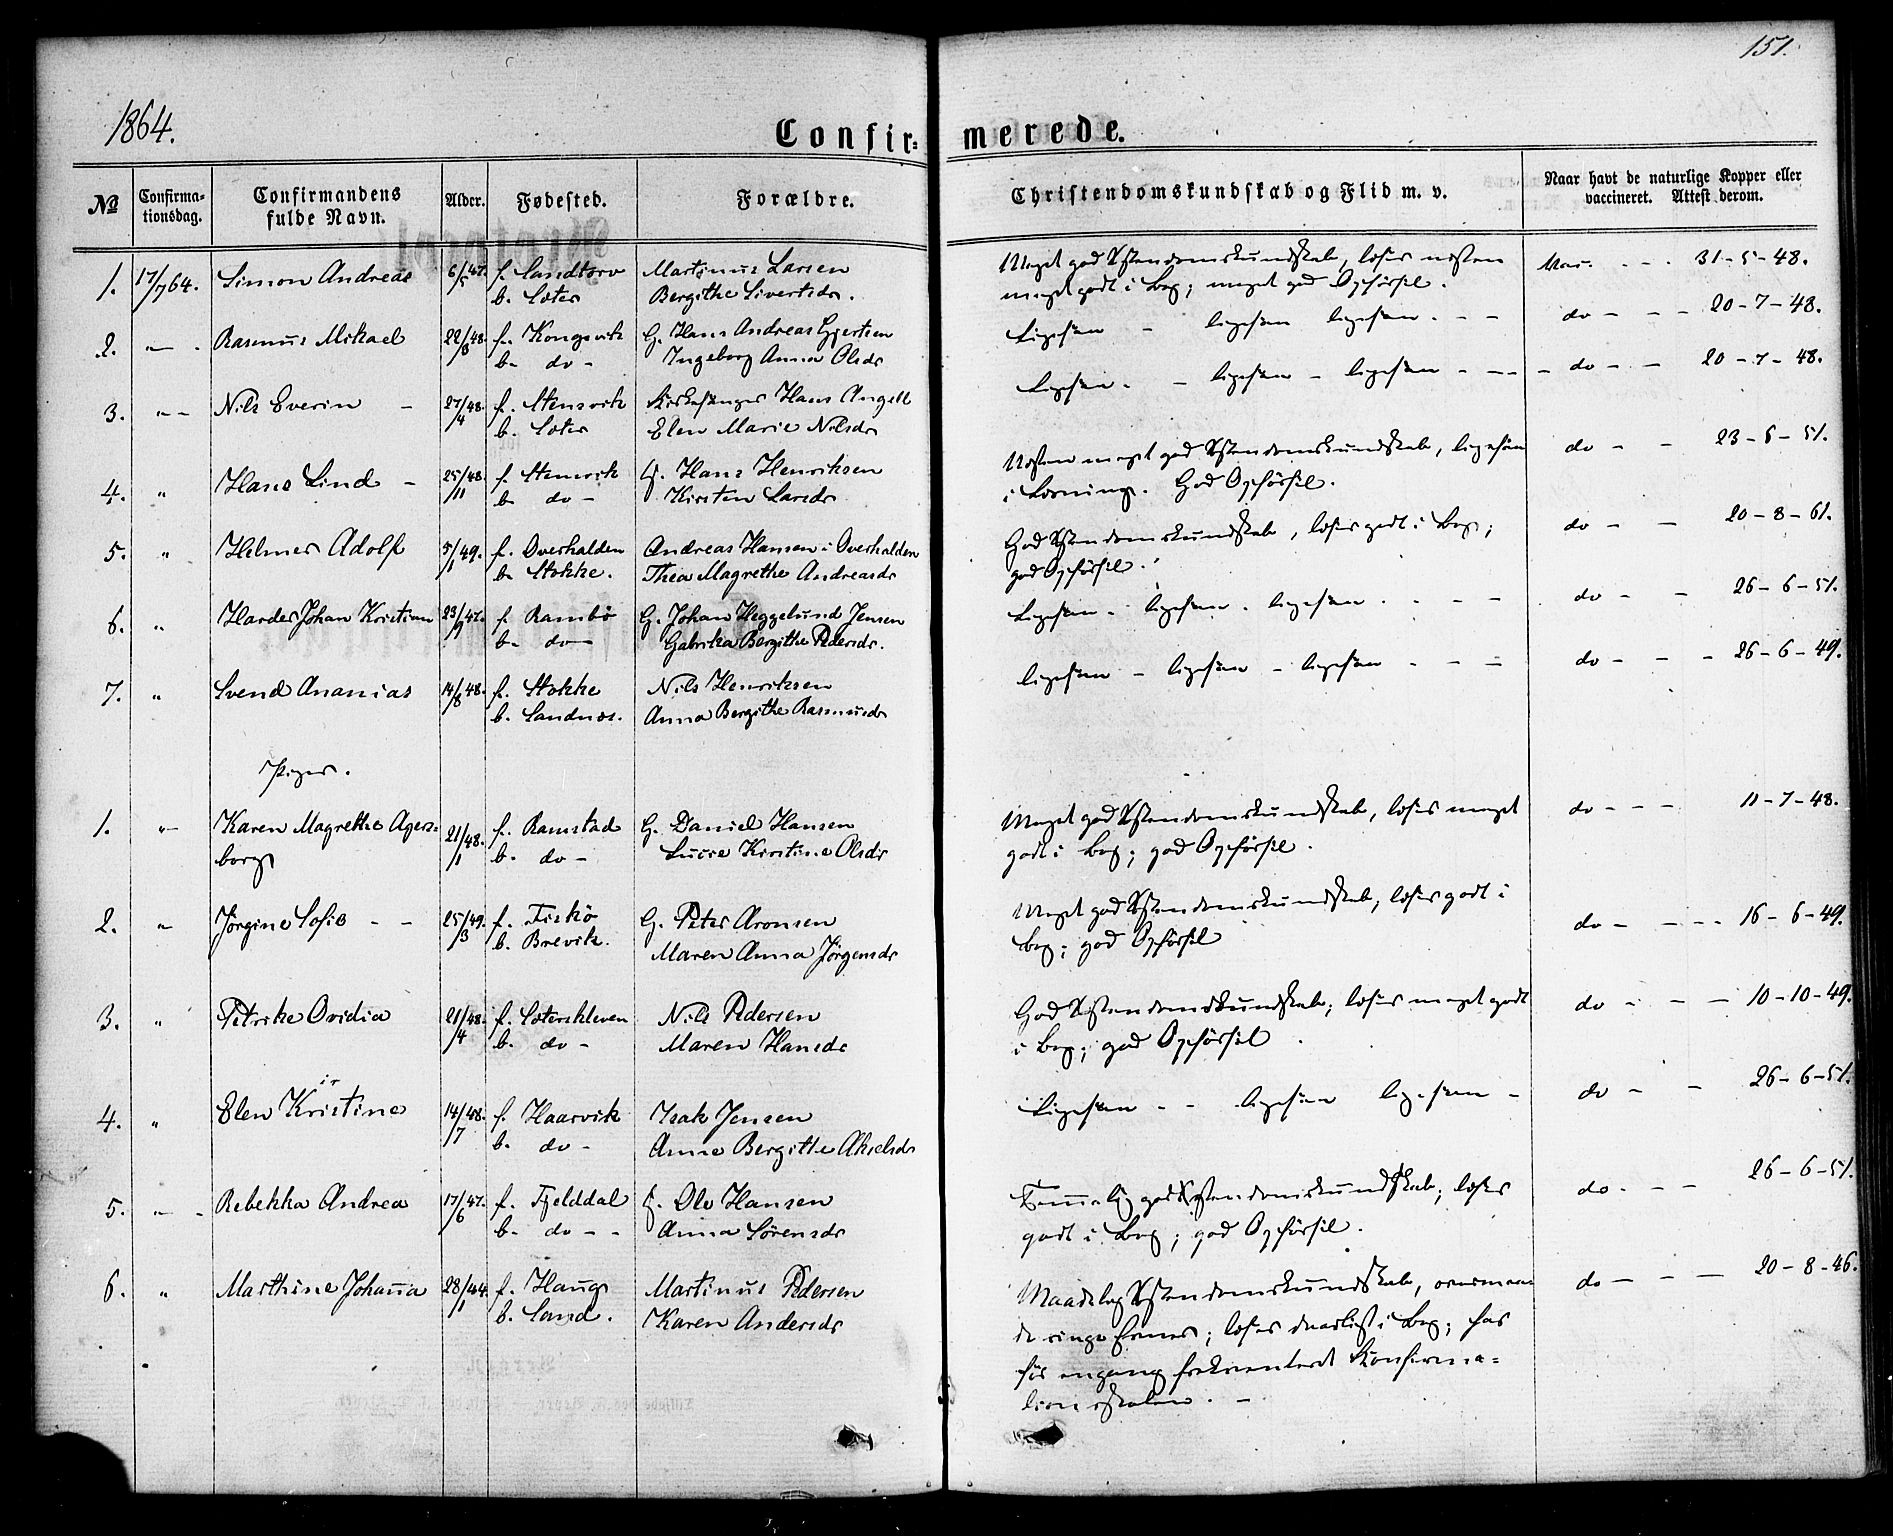 151.
1864.
Confir- merede.
№ Confirma- Confirmandens Alder. Fødested. Forældre. Christendomskundskab og Flid m. v. Naar havt de naturlige Kopper eller
tionsdag. fulde Navn. vaccineret. Attest derom.
1. 17/7 64. Simon Andreas 6/5 47. f. Sandtorv Martinus Larsen Meget god Xstendomskundskab, læser næsten Vac. - - - 31-5-48.
b. Sæter Bergithe Sivertsdr. meget godt i Bog; meget god Opførsel.
2. " Rasmus Mikael 22/3 48. f. Kongsvik G. Hans Andreas Gjertsen Ligesaa - ligesaa ligesaa - - - do - - - 20-7-48.
b. do - Ingeborg Anna Olsdr
3. " Nils Everin - 27/4 48. f. Stensvik Kirkesanger Hans Angell Ligesaa - - ligesaa - ligesaa - - - do - - 20-7-48.
b. Sæter Elen Marie Nilsdr
4. " Hans Lind - 25/11 48. f. Stensvik G. Hans Henriksen Næsten meget god Xstendomskundskab, ligesaa do - - 23-6-51.
b. do - Kirsten Larsdr i Læsning. God Opførsel.
5. " Helmer Adolf 5/1 49. f. Overhalden Andreas Hansen i Overhalden God Xstendomskundskab, læser godt i Bog; do - - 20-8-61.
b. Stokke. Thea Magrethe Andreasdr god Opførsel.
6. " Hardes Johan Kristian 23/9 47. f. Rambø G. Johan Heggelund Jensen Ligesaa - ligesaa - ligesaa - - - do - - 26-6-51.
b. do - Gabrika Bergithe Pedersdr.
7. " Svend Ananias 14/8 48. f. Stokke Nils Henriksen ligesaa - ligesaa - ligesaa - - - do - - - 26-6-49.
b. Sandnæs. Anna Bergithe Rasmusdr
Piger.
1. " Karen Magrethe Agers- 21/1 48. f. Ramstad G. Daniel Hansen Meget god Xstendomskundskab, læser meget do - - - 11-7-48.
borg b. do - Lucie Kirstine Olsdr godt i Bog; god Opførsel.
2. " Jørgine Sofie - - 25/3 49. f. Fiskø G. Peter Aronsen Meget god Xstendomskundskab, læser godt i do - - - - 16-6-49.
b. Brevik. Maren Anna Jörgensdr Bog; god Opførsel
3. " Petrike Ovidia 21/4 48. f. Sæterskleven Nils Pedersen God Xstendomskundskab; læser meget godt do - - - 10-10-49.
b. do - Maren Hansdr i Bog; god Opførsel.
4. " Elen Kristine 14/7 48. f. Haarvik Isak Jensen Ligesaa - - ligesaa ligesaa - do - - 26-6-51.
b. do - Anne Bergitte Akselsdr
5. " Rebekka Andrea 17/6 47. f. Fjelddal G. Ole Hansen Temmelig god Xstendomskundskab; læser do. - - 26-6-51.
b. do - - Anna Sørensdr godt i Bog; god Opførsel.
6. " Marthine Johanna 28/1 44. f. Haug Martinus Pedersen Maadelig Xstendomskundskab, do - - - 20-8-46.
b. Sand. Karen Andersdr ringe Evner; læser daarligt i Bog; har
før engang frekventeret Konfirma-
tionsskolen. -